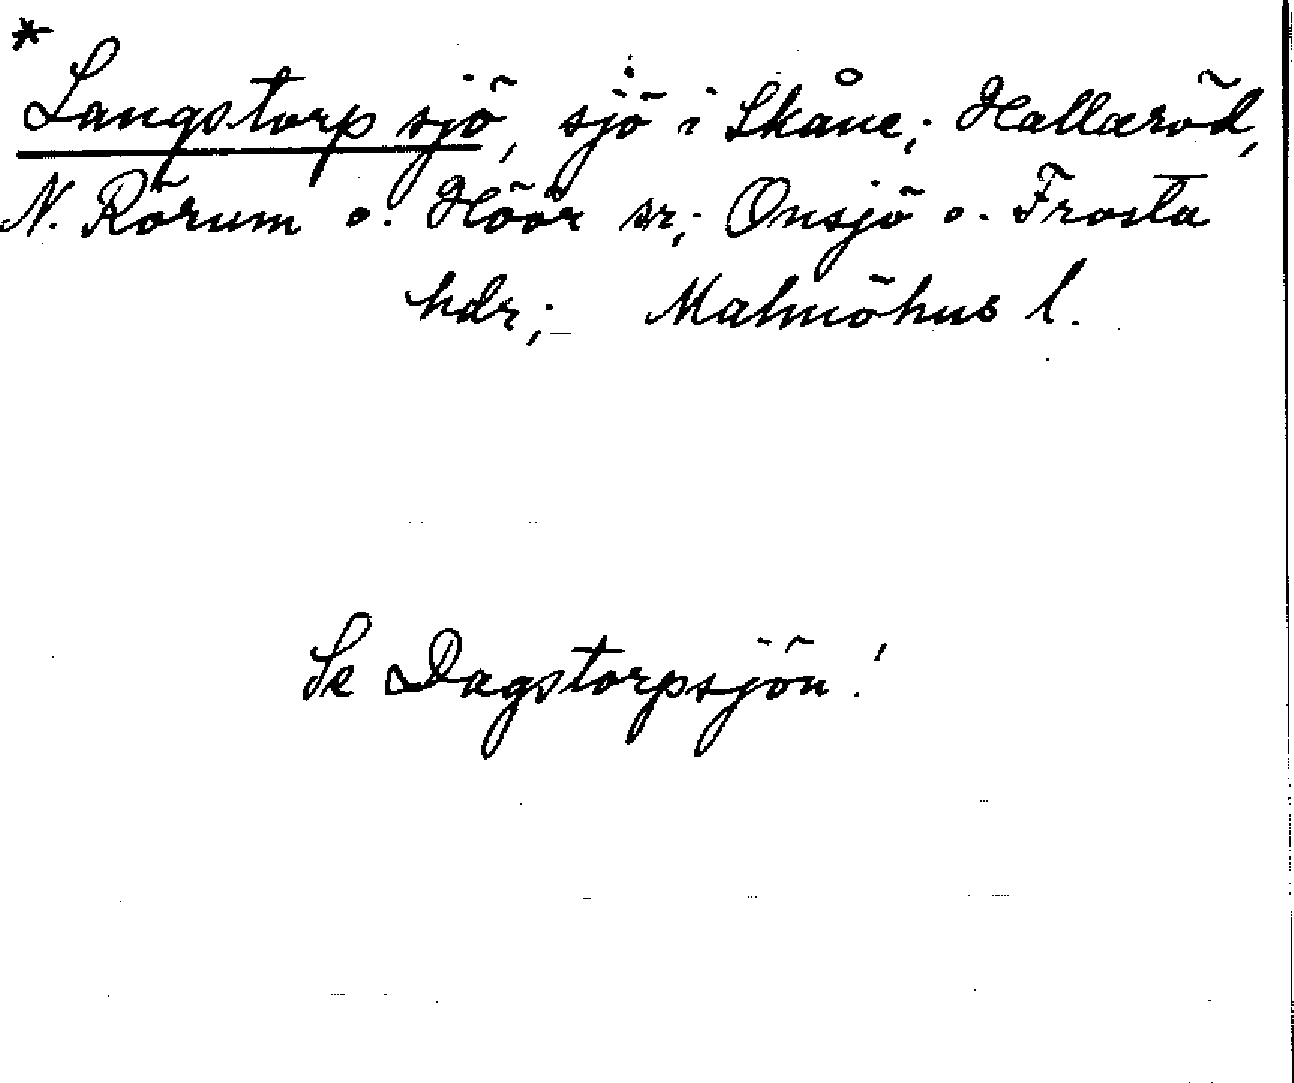 *
Langstorp sjö, sjö i Skåne; Hallaröd,
N. Rörum o. Höör sr; Onsjö o. Frosta
hdr; Malmöhus l.
Se Dagstorpsjön!